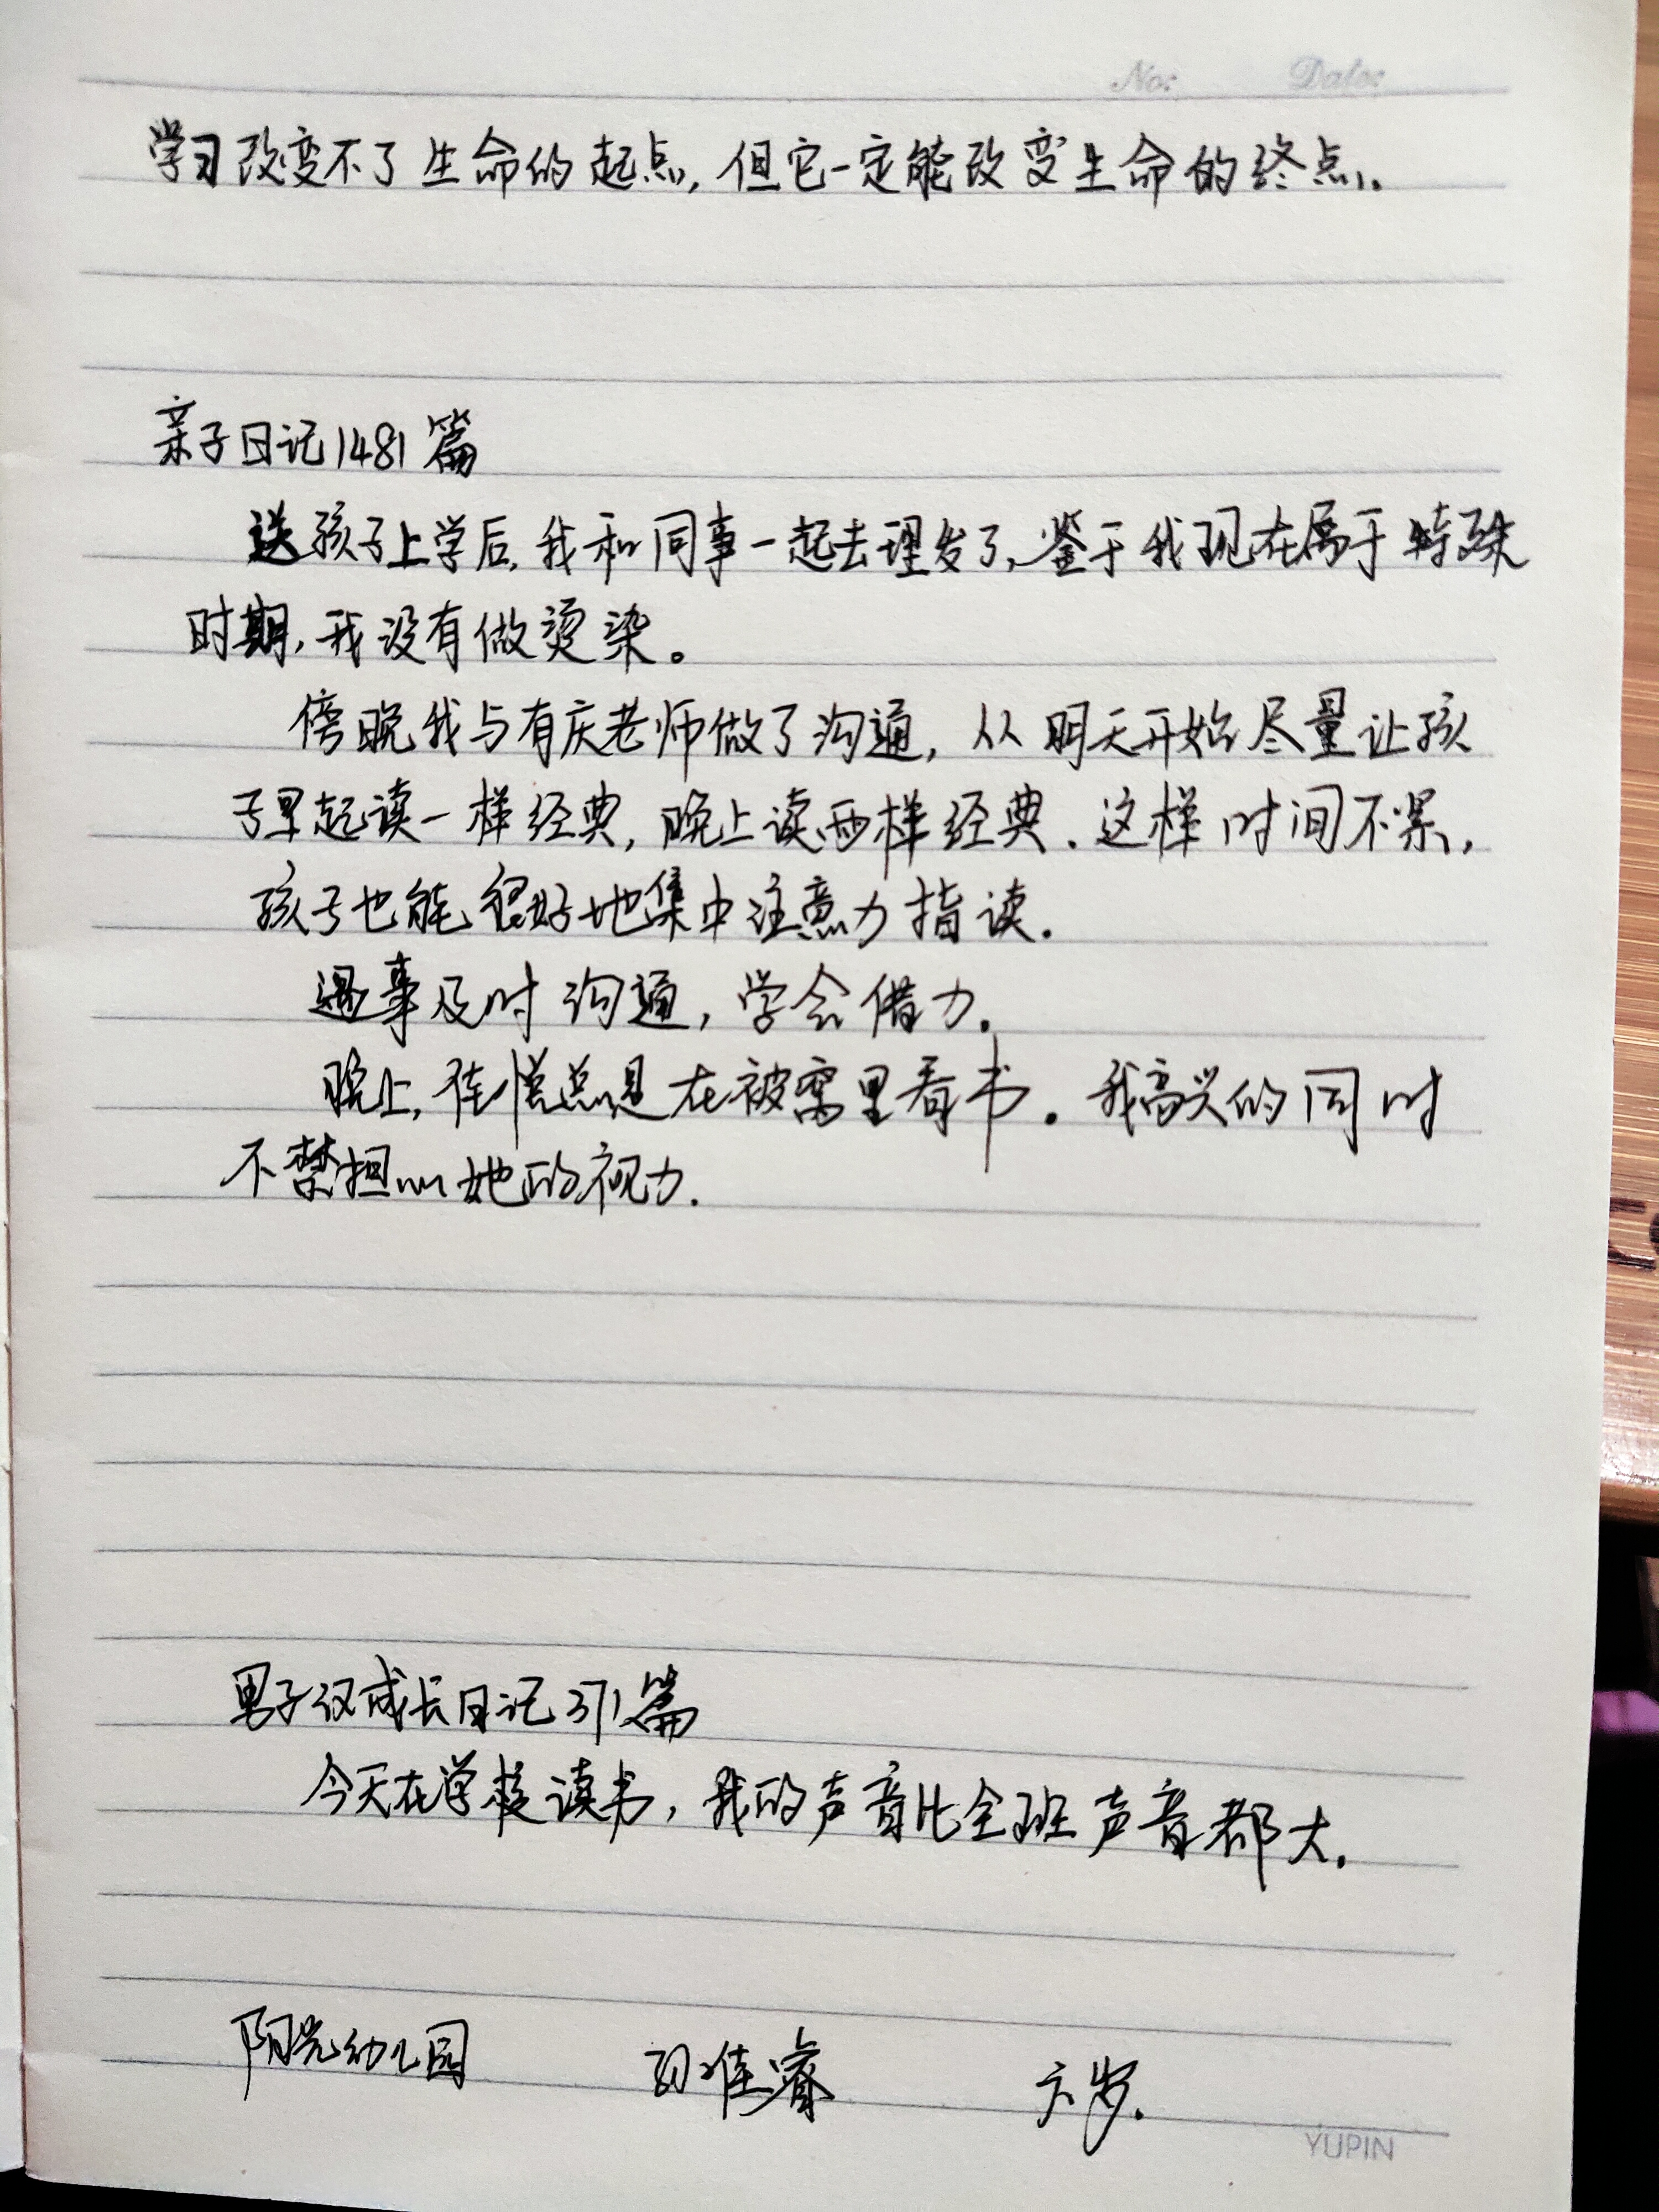 No: Date:
学习改变不了生命的起点,但它一定能改变生命的终点。
亲子日记1481篇
送孩子上学后,我和同事一起去理发了,鉴于我现在属于特殊
时期,我没有做烫染。
傍晚我与有庆老师做了沟通,从明天开始尽量让孩
子早起读一样经典,晚上读两样经典.这样时间不累,
孩子也能很好地集中注意力指读.
遇事及时沟通,学会借力.
晚上,总是在被窝里看书.我高兴的同时
不禁担心她的视力.
男子汉成长日记371篇
今天在学校读书,我的声音比全班声音都大.
阳光幼儿园 佳睿 六岁.
YUPIN